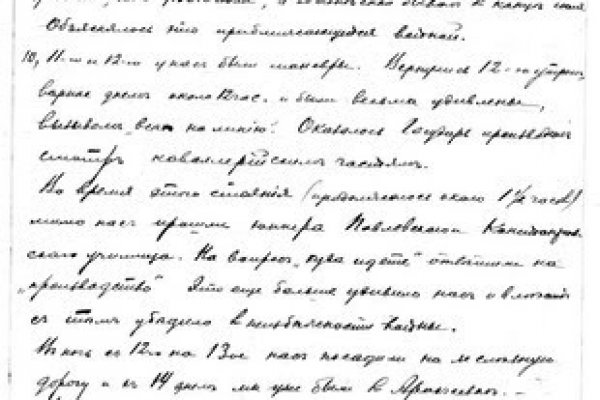 Объяснялось это приближающейся войной.
10, 11-го и 12-го у нас были маневры. Вернулись 12-го утром,
вернее днем около 12 час. и были весьма удивлены,
вызовом „всех на линию“. Оказалось Государь производил
смотр кавалерийским частям.
Во время этого стояния (продолжалось около 1½ часов)
мимо нас прошли юнкера Павловского
ского училища. На вопрос „куда идете“ ответили на
„производство“ Это еще больше удивило нас и
с тем убедило в неизбежности войны.
В ночь с 12го на 13ое нас посадили на железную
дорогу и с 14 днем мы уже были в